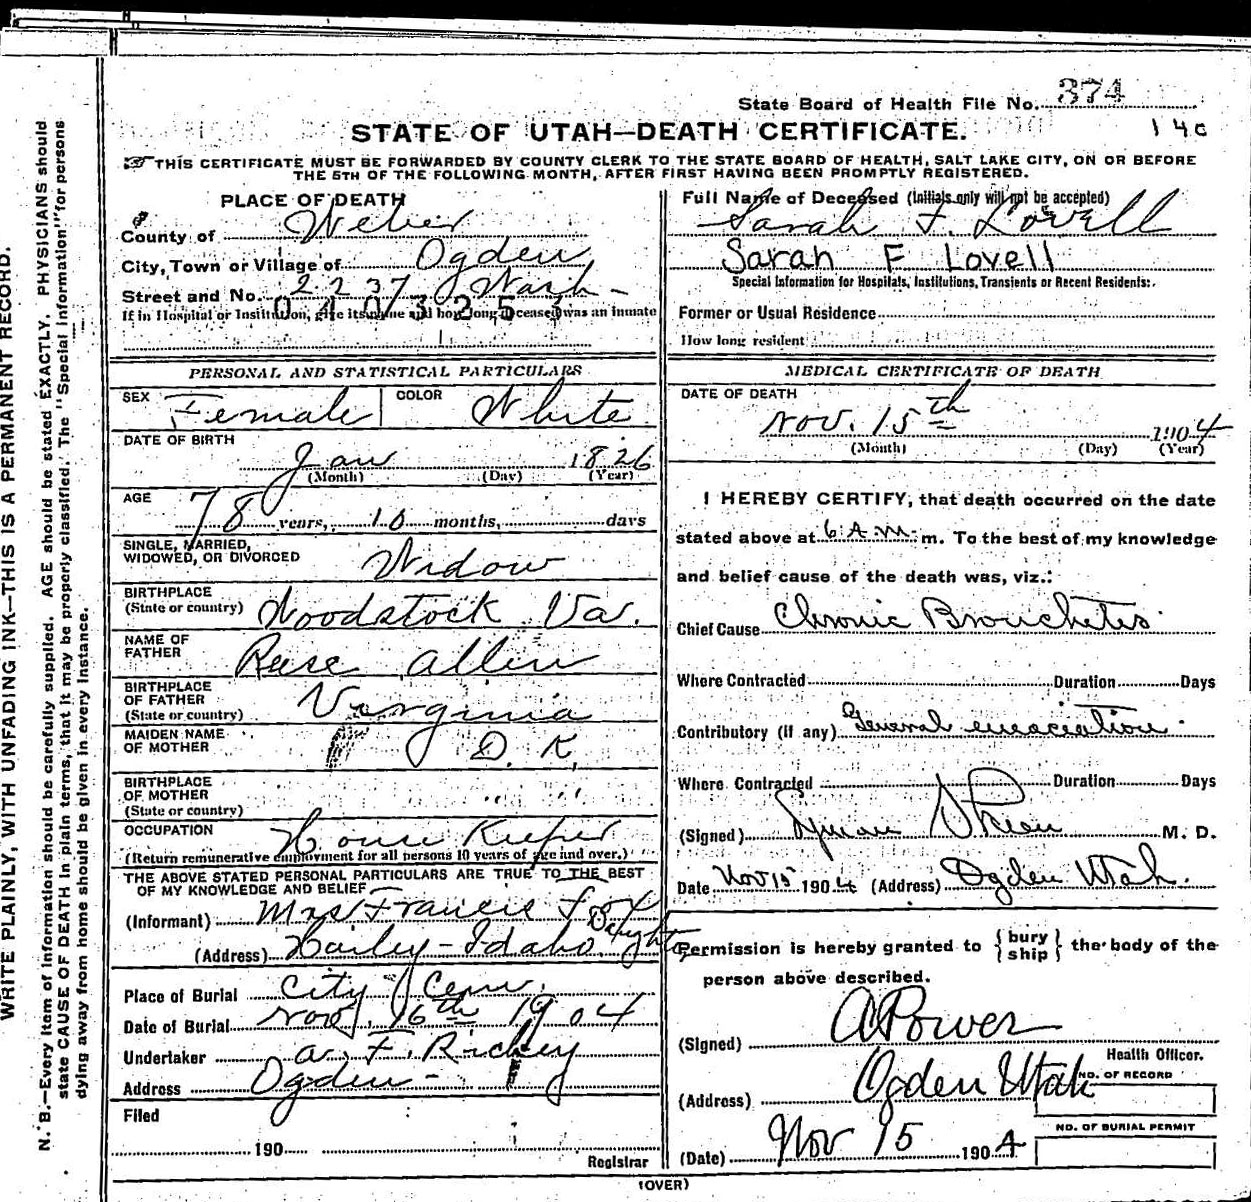 State Board of Health File No. 374
140
STATE OF UTAH—DEATH CERTIFICATE.
THIS CERTIFICATE MUST BE FORWARDED BY COUNTY CLERK TO THE STATE BOARD OF HEALTH, SALT LAKE CITY, ON OR BEFORE
THE 5TH OF THE FOLLOWING MONTH, AFTER FIRST HAVING BEEN PROMPTLY REGISTERED.
WRITE PLAINLY, WITH UNFADING INK—THIS IS A PERMANENT RECORD.
N. B.—Every item of information should be carefully supplied. AGE should be stated EXACTLY. PHYSICIANS should
state CAUSE OF DEATH in plain terms, that it may be properly classified. The "Special Information" for persons
dying away from home should be given in every instance.
PLACE OF DEATH
County of Weber
City, Town or Village of Ogden
Street and No. 2237 Wash-
0 4 0 3 2 5
If in Hospital or Institution, give its name and how long deceased was an inmate
PERSONAL AND STATISTICAL PARTICULARS
SEX Female COLOR White
DATE OF BIRTH
Jan 1826
(Month) (Day) (Year)
AGE
78 years, 10 months, days
SINGLE, MARRIED,
WIDOWED, OR DIVORCED Widow
BIRTHPLACE
(State or country) Woodstock Va.
NAME OF
FATHER Reese Allen
BIRTHPLACE
OF FATHER
(State or country) Virginia
MAIDEN NAME
OF MOTHER D. K.
BIRTHPLACE
OF MOTHER
(State or country) " "
OCCUPATION House Keeper
(Return remunerative employment for all persons 10 years of age and over.)
THE ABOVE STATED PERSONAL PARTICULARS ARE TRUE TO THE BEST
OF MY KNOWLEDGE AND BELIEF
(Informant) Mrs Francis Fox
Daughter
(Address) Hailey-Idaho.
Place of Burial City Cem.
Date of Burial Nov. 16th 1904
Undertaker A. F. Richey
Address Ogden-
Filed
190
Registrar
Full Name of Deceased (Initials only will not be accepted)
Sarah F. Lovell
Sarah F Lovell
Special Information for Hospitals, Institutions, Transients or Recent Residents:
Former or Usual Residence
How long resident
MEDICAL CERTIFICATE OF DEATH
DATE OF DEATH
Nov. 15th 1904
(Month) (Day) (Year)
I HEREBY CERTIFY, that death occurred on the date
stated above at 6 A.M. m. To the best of my knowledge
and belief cause of the death was, viz.:
Chief Cause Chronic Bronchetes
Where Contracted Duration Days
Contributory (if any) General emaciation
Where Contracted Duration Days
(Signed) Lyman Skeen M. D.
Date Nov 15 1904 (Address) Ogden Utah.
Permission is hereby granted to {bury
ship} the body of the
person above described.
(Signed) A Power
Health Officer.
(Address) Ogden Utah
NO. OF RECORD
NO. OF BURIAL PERMIT
(Date) Nov 15 1904
(OVER)